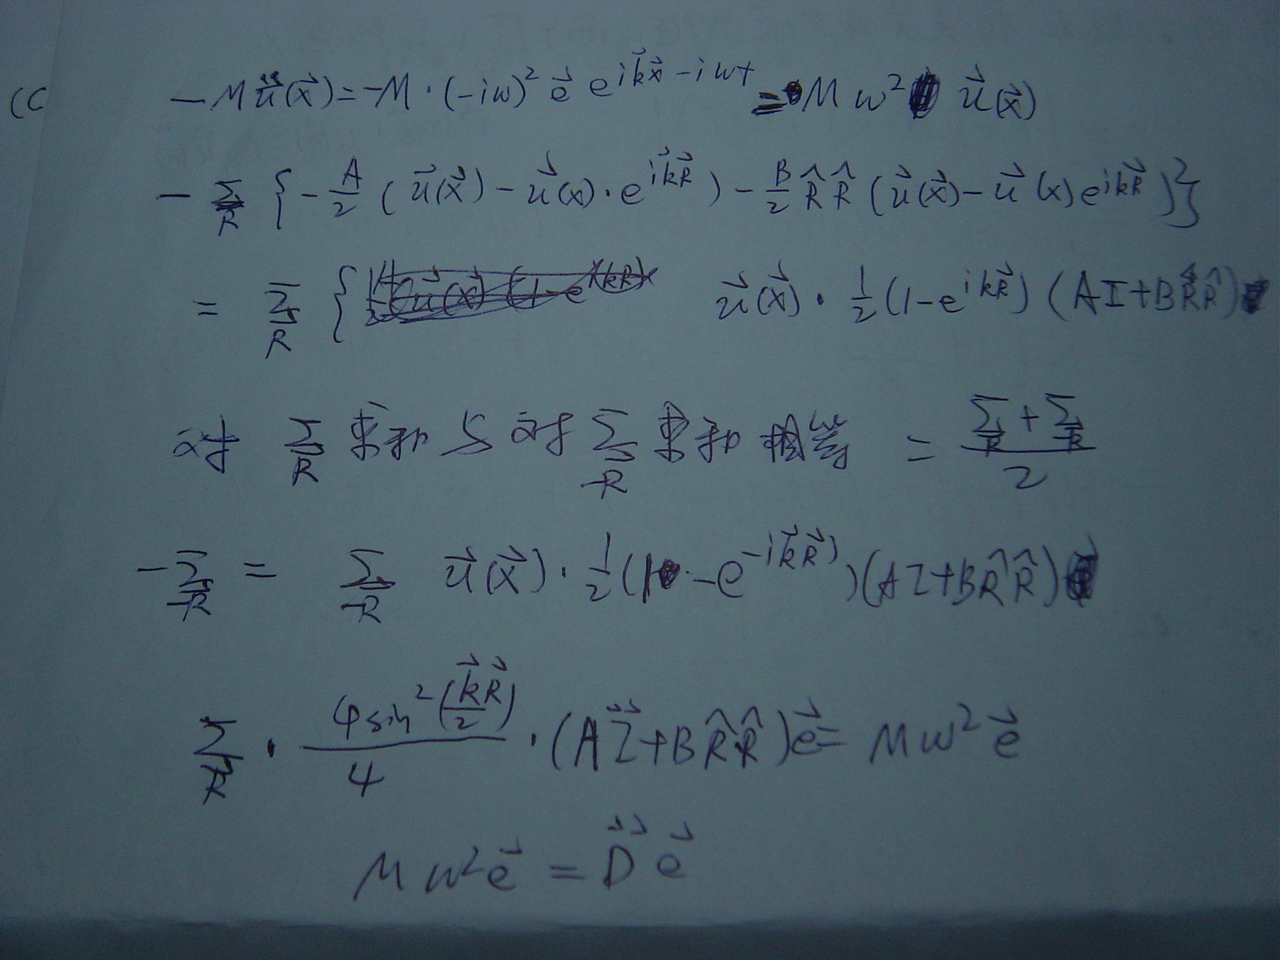 (C  $-M\ddot{\vec{u}}(\vec{x}) = -M \cdot (-i\omega)^2 \vec{e} e^{i\vec{k}\vec{x} - i\omega t} = M\omega^2 \vec{u}(\vec{x})$
$-\sum_R \{ -\frac{A}{2} (\vec{u}(\vec{x}) - \vec{u}(x) \cdot e^{i\vec{k}\vec{R}}) - \frac{B}{2} \hat{R}\hat{R} (\vec{u}(\vec{x}) - \vec{u}(x) e^{i\vec{k}\vec{R}}) \}$
$= \sum_R \{ \vec{u}(\vec{x}) \cdot \frac{1}{2} (1 - e^{ik\vec{R}}) (AI + B\hat{R}\hat{R})$
对 $\sum_R$ 求和与对 $\sum_{-R}$ 求和相等 $= \frac{\sum_R + \sum_{-R}}{2}$
$-\sum_{-R} = \sum_{-R} \vec{u}(\vec{x}) \cdot \frac{1}{2} (1 - e^{-i\vec{k}\vec{R}}) ) (AI + B\hat{R}\hat{R})$
$\sum_R \cdot \frac{4\sin^2(\frac{\vec{k}\vec{R}}{2})}{4} \cdot (A\vec{\vec{I}} + B\hat{R}\hat{R}) \vec{e} = M\omega^2 \vec{e}$
$M\omega^2 \vec{e} = \vec{\vec{D}} \vec{e}$